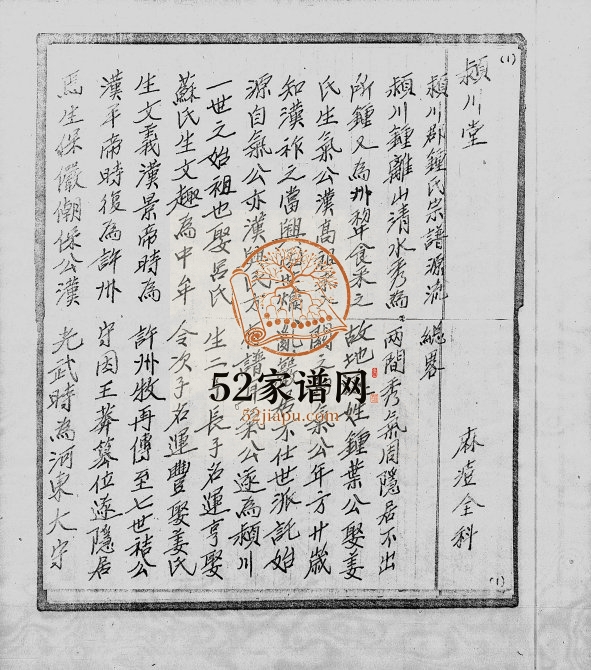 (1)
潁川堂
潁川郡鍾氏宗譜源流總畧 麻澄全科
潁川鍾離山清水秀為兩間秀氣周隱居不出
所鍾又為州犂食采之故地 姓鍾葉公娶姜
氏生氣公漢高祖 關之 公年方廿歲
知漢祚之當興 亂 不仕世派託始
源自氣公亦漢 氏方 譜 氣公遂為潁川
一世之始祖也娶吕氏生二 長子名運亨娶
蘇氏生文趣為中牟令次子名運豐娶姜氏
生文義漢景帝時為許州牧再傳至七世祮公
漢平帝時復為許州守因王莽篡位遂隱居
焉生保儼僩保公漢光武時為河東大守
(1)
52家谱网
52jiapu.com